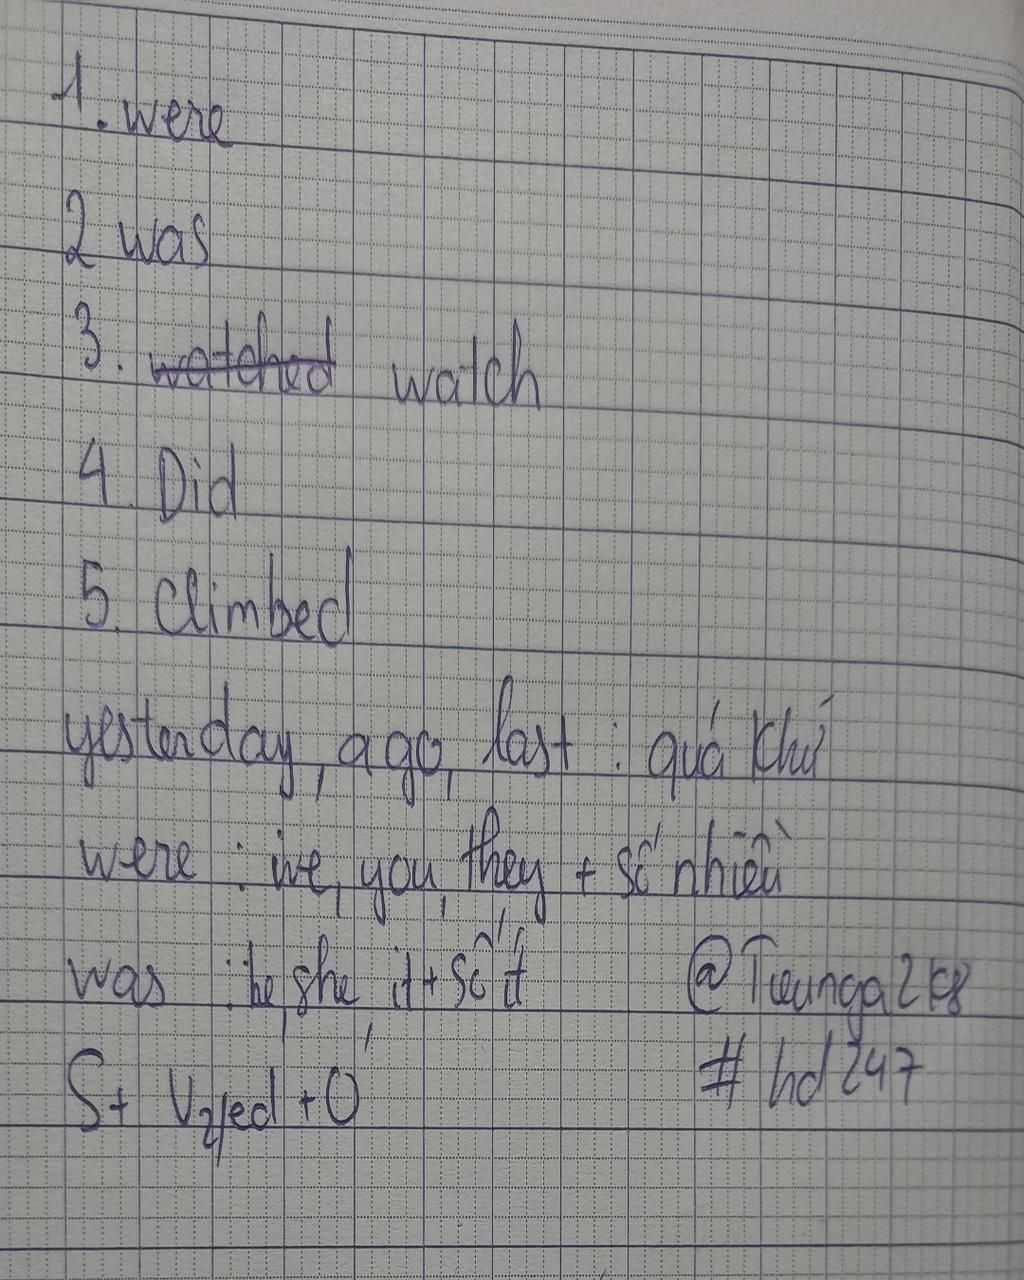 1. were
2 was
3. watched watch
4. Did
5. climbed
yesterday, ago, last : quá khứ
were : we, you, they + số nhiều
was : he, she, it + số ít
@Tueunga2k8
S + V2/ed + O
# hd247